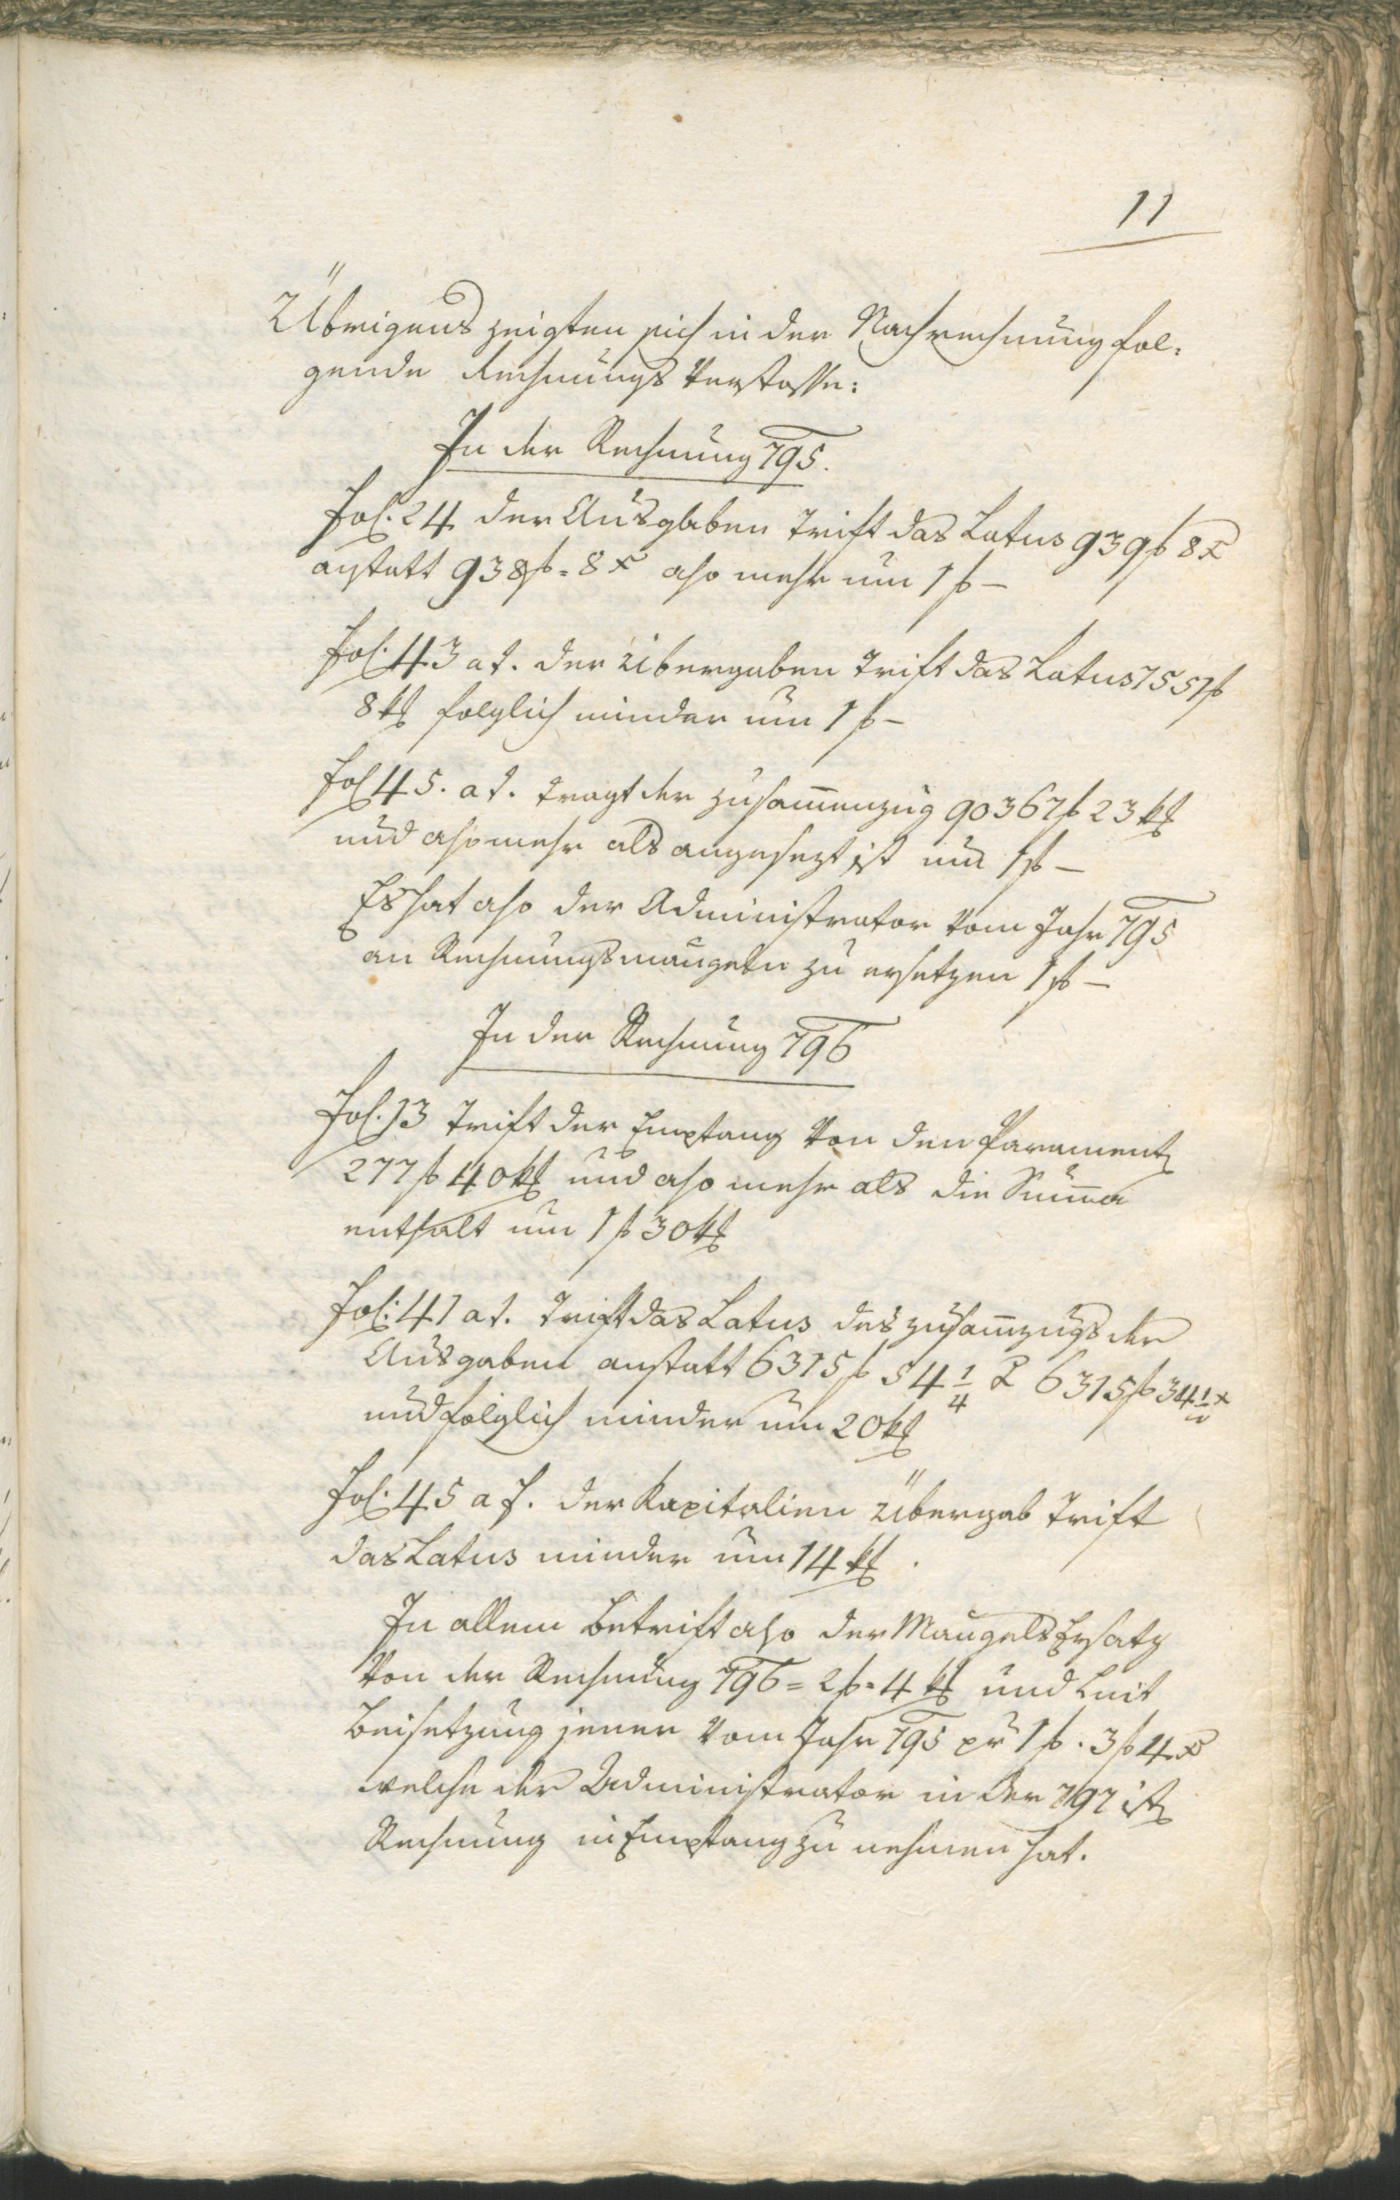 11
Übrigens zeigten sich in der Nachrechnung fol-
gende Rechnungs Verstosse:
In der Rechnung 795.
Fol. 24 der Ausgaben trift das Latus 939 f 8 x
anstatt 938 f = 8 x also mehr um 1 f —
Fol: 43 a t. der Übergaben trift das Latus 7551 f
8 kr folglich minder um 1 f —
Fol 45. a t. tragt der Zusam̄enzug 90367 f 23 kr
und also mehr als angesezt ist um 1 f —
Es hat also der Administrator vom Jahr 795
an Rechnungsmängeln zu ersetzen 1 f —
In der Rechnung 796
Fol. 13 trift der Empfang von den Parament
277 f 40 kr und also mehr als die Sum̄a
enthalt um 1 f 30 kr
Fol: 41 a t. trift das Latus des Zusam̄zugs der
Ausgaben anstatt 6315 f 54 1/4 x 6315 f 34 1/4 x
und folglich minder um 20 kr
Fol: 45 a t. der Kapitalien Übergab trift
das Latus minder um 14 kr.
In allem betrift also der Mängels Ersatz
von der Rechnung 796 = 2 f = 4 kr und mit
Beisetzung jener vom Jahr 795 pr 1 f . 3 f 4 x
welche der Administrator in der 797 ist
Rechnung in Empfang zu nehmen hat.